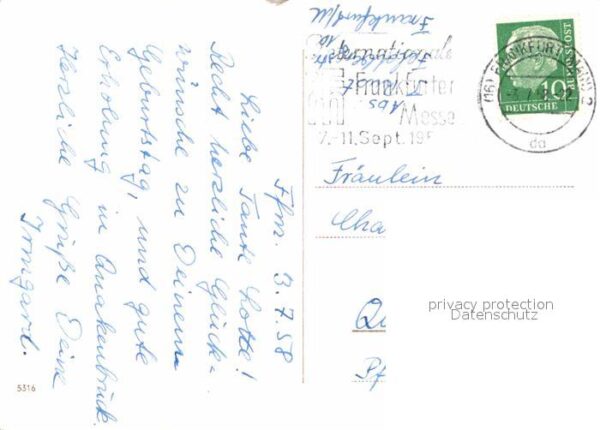 Ffm. 3.7.58
Liebe Tante Lotte!
Recht herzliche Glück-
wünsche zu Deinem
Geburtstag, und gute
Erholung in Quakenbrück.
Herzliche Grüße Deine
Irmgard.
5316
Frankfurt/M
Abs.
Internationale
Frankfurter
Messe
7.-11. Sept. 195
FRANKFURT
da
10
DEUTSCHE
BUNDESPOST
Fräulein
Cha
Qu
Pf
privacy protection
Datenschutz